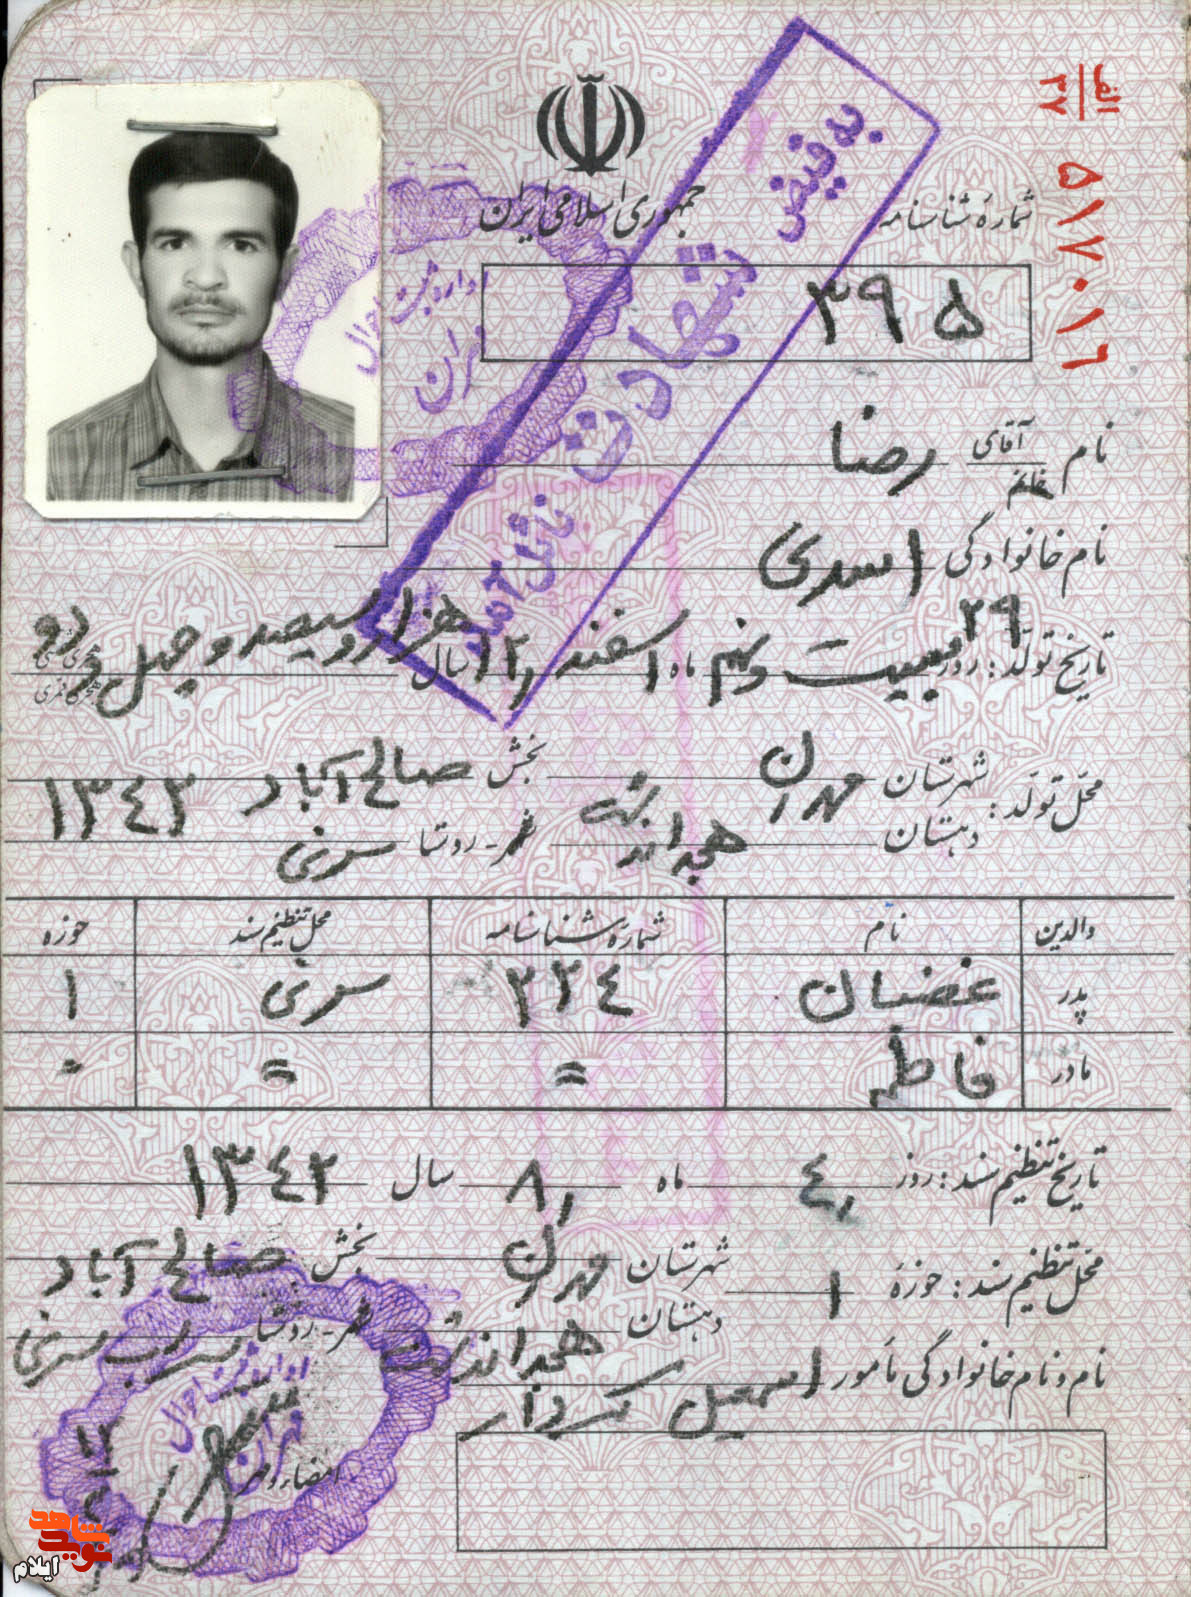 الف
۳۲
۵۱۷۰۱۶
جمهوری اسلامی ایران
شمارهٔ شناسنامه
۳۹۵
به فیض شهادت نائل آمد
اداره ثبت احوال
مهران
نام آقای خانم رضا
نام خانوادگی اسدی
۲۹
تاریخ تولّد: روز بیست و نهم ماه اسفند ۱۲ سال هزار و سیصد و چهل و دو
هجری شمسی
هجری قمری
محلّ تولّد: شهرستان مهران بخش صالح آباد ۱۳۴۲
دهستان شهر - روستا سرنی
والدین نام شمارهٔ شناسنامه محل تنظیم سند حوزه
پدر غضبان ۲۲۴ سرنی ۱
مادر فاطمه = = "
تاریخ تنظیم سند: روز ۴ ماه ۸ سال ۱۳۴۲
محلّ تنظیم سند: حوزهٔ ۱ شهرستان مهران بخش صالح آباد
دهستان شهر - روستا سرنی
نام و نام خانوادگی مأمور اسمعیل
اداره ثبت احوال
مهران
امضاء و مهر
نوید شاهد
ایلام